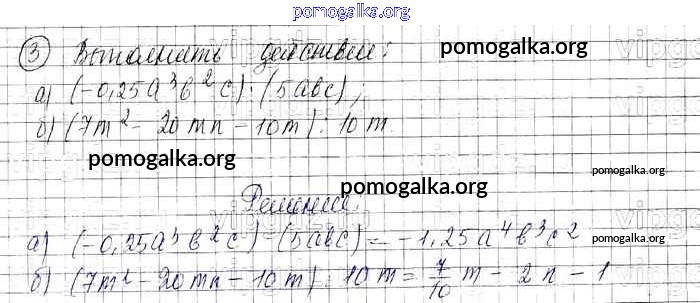 pomogalka.org
③ Выполнить действия:
pomogalka.org
а) (-0,25a³b²c) · (5abc);
б) (7m² - 20mn - 10m) : 10m
pomogalka.org
pomogalka.org
pomogalka.org
Решение.
а) (-0,25a³b²c) · (5abc) = -1,25a⁴b³c²
pomogalka.org
б) (7m² - 20mn - 10m) : 10m = 7/10 m - 2n - 1